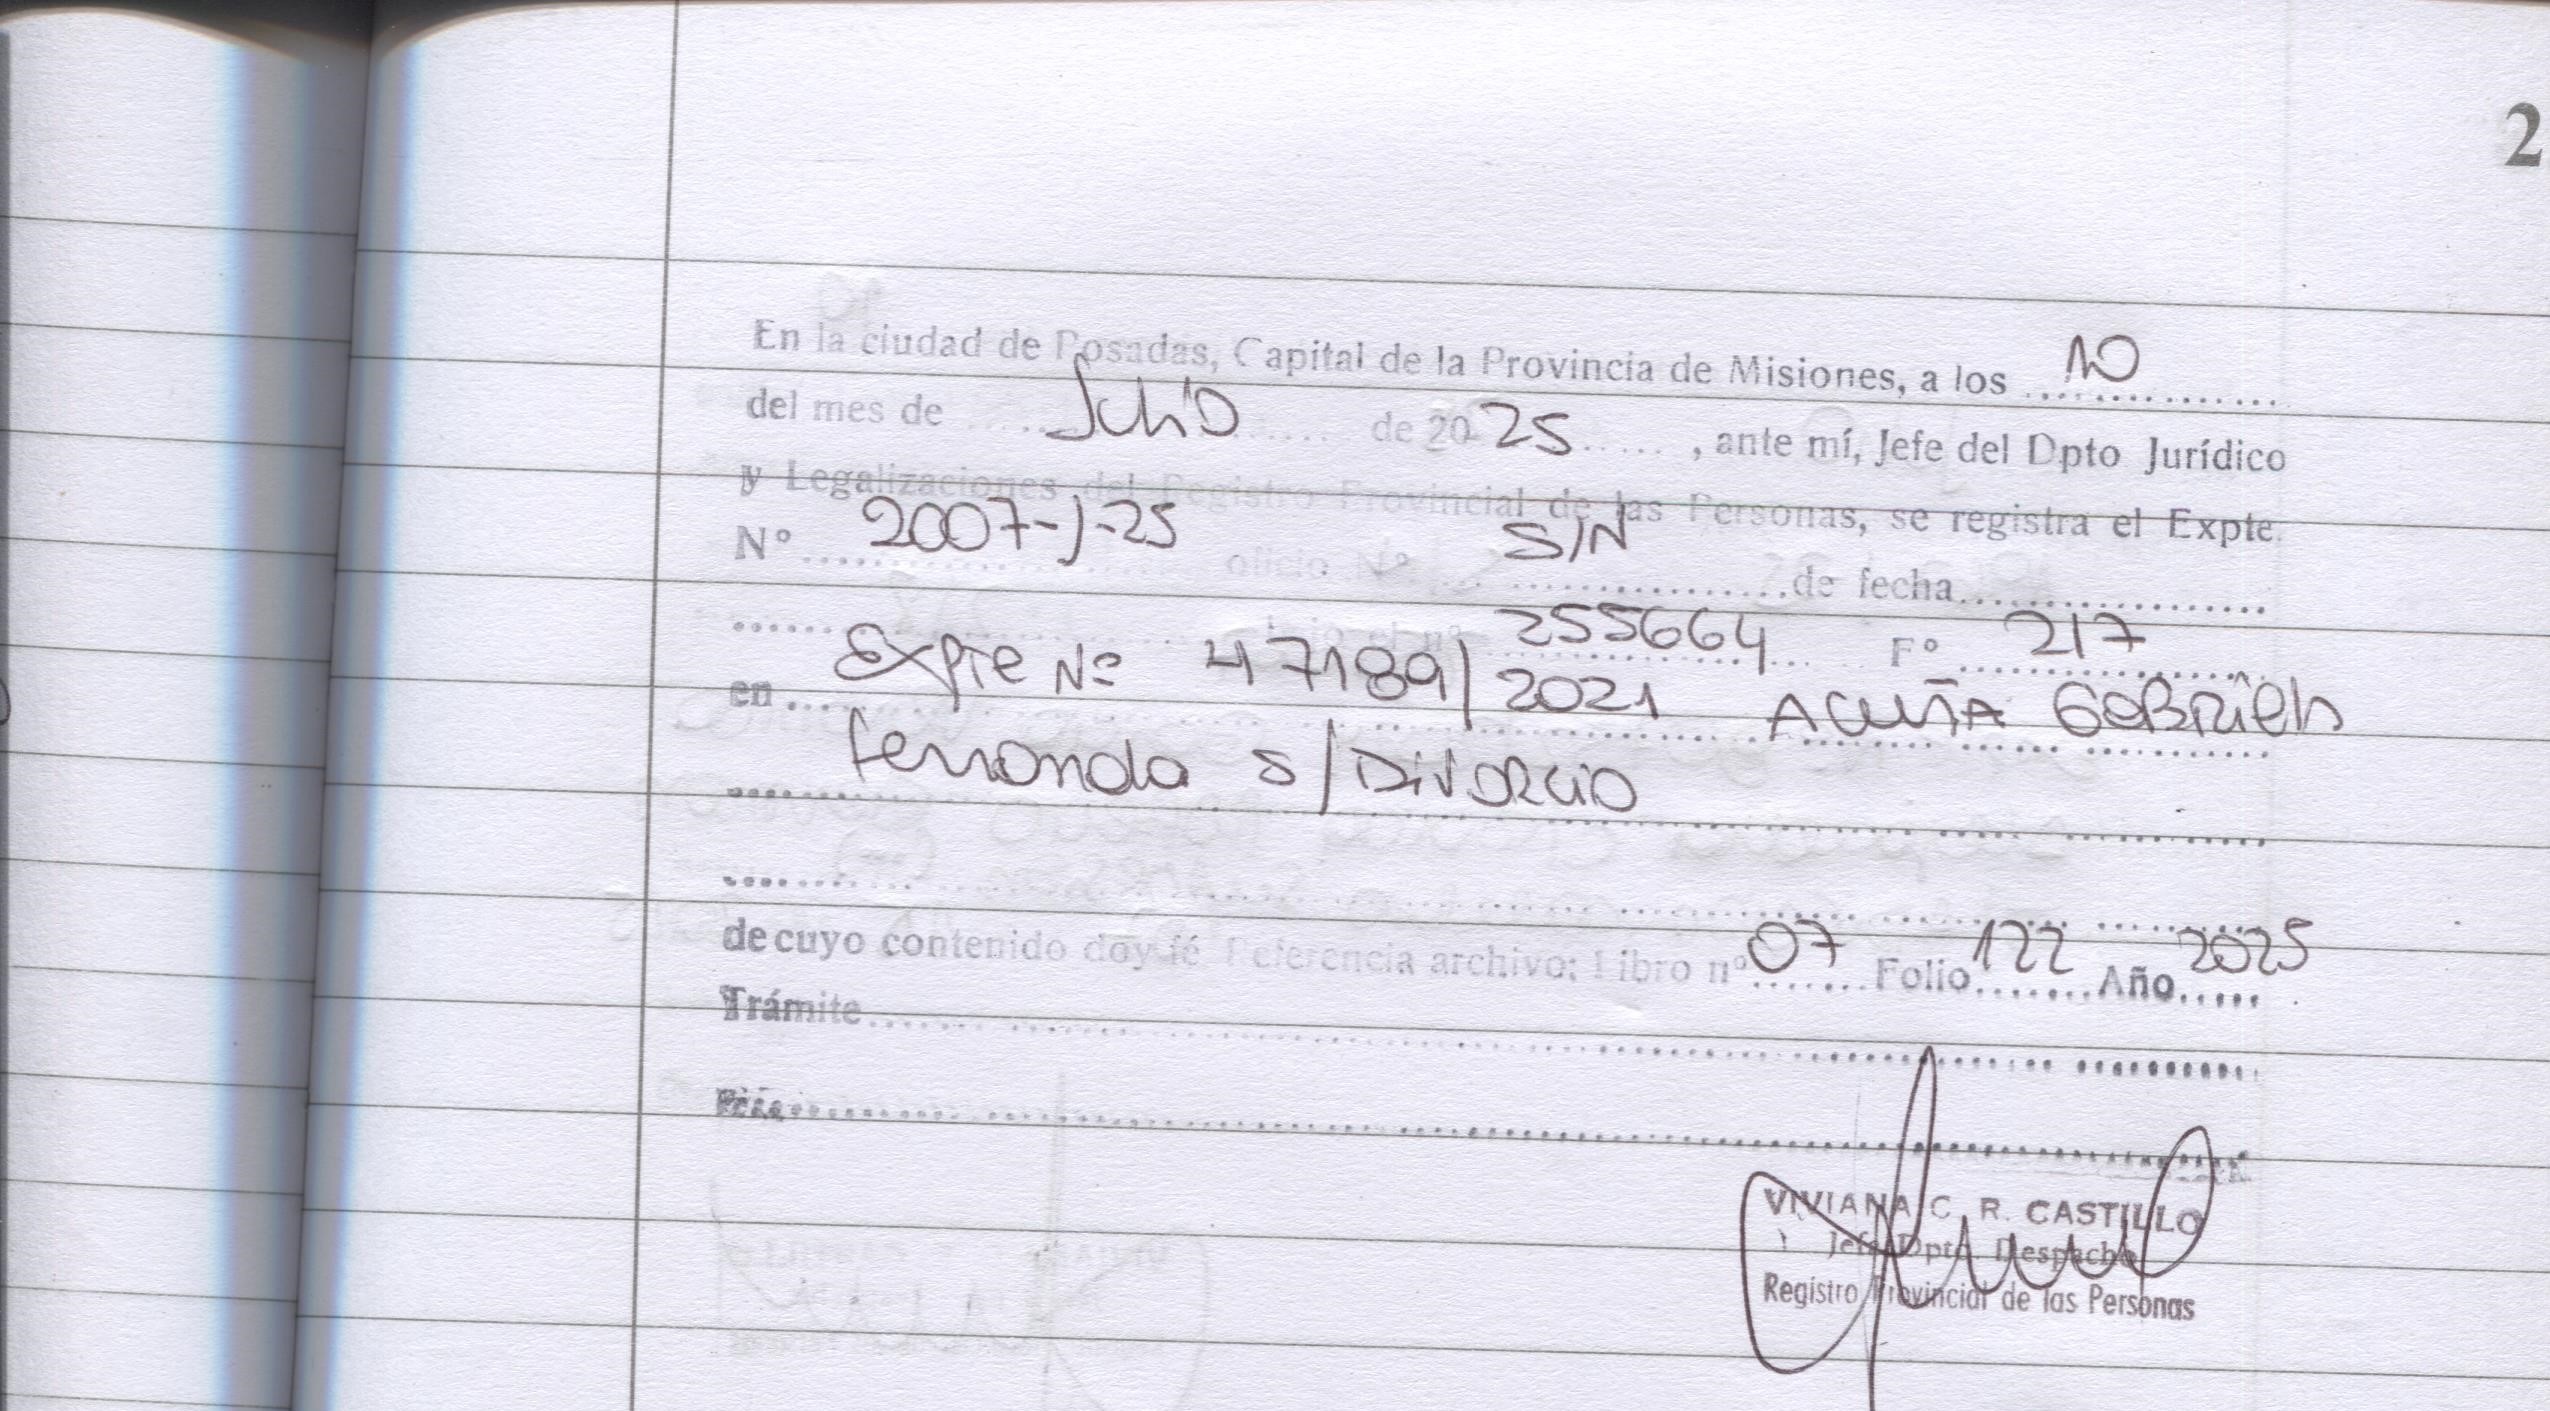 2
En la ciudad de Posadas, Capital de la Provincia de Misiones, a los 10
del mes de Julio de 2025, ante mí, Jefe del Dpto Jurídico
y Legalizaciones del Registro Provincial de las Personas, se registra el Expte.
Nº 2007-J-25 oficio Nº S/N de fecha
bajo el nº 255664 Fº 217
en Expte Nº 47189/2021 ACUÑA GABRIELA
Fernanda s/ DIVORCIO
de cuyo contenido doy fé Referencia archivo: Libro nº 07 Folio 122 Año 2025
Trámite
VIVIANA C. R. CASTILLO
Jefe Dpto. Despacho
Registro Provincial de las Personas